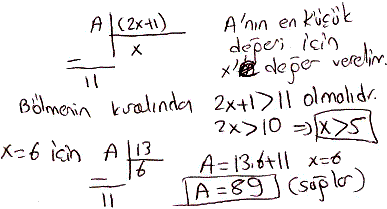 A | (2x+1)
x
11
A'nın en küçük
değeri için
x'e değer verelim.
Bölmenin kuralından 2x+1>11 olmalıdır.
2x>10 ⇒ x>5
x=6 için A | 13
6
11
A=13.6+11 x=6
A=89 (sağlar)